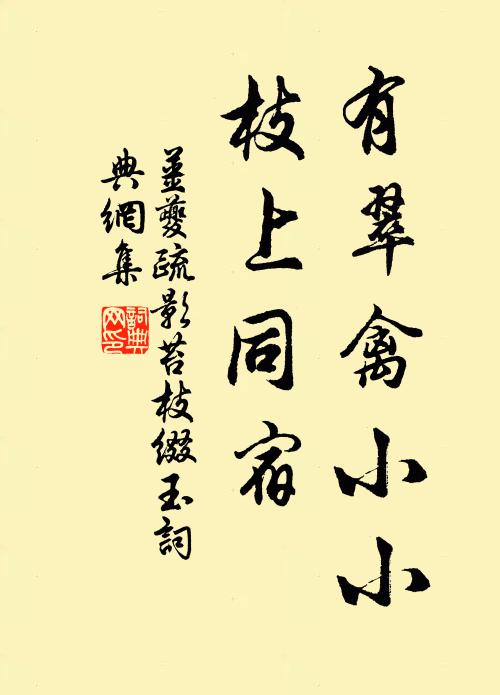 有翠禽小小
枝上同宿
薑夔疏影苔枝綴玉詞
典網集
詞典
网印